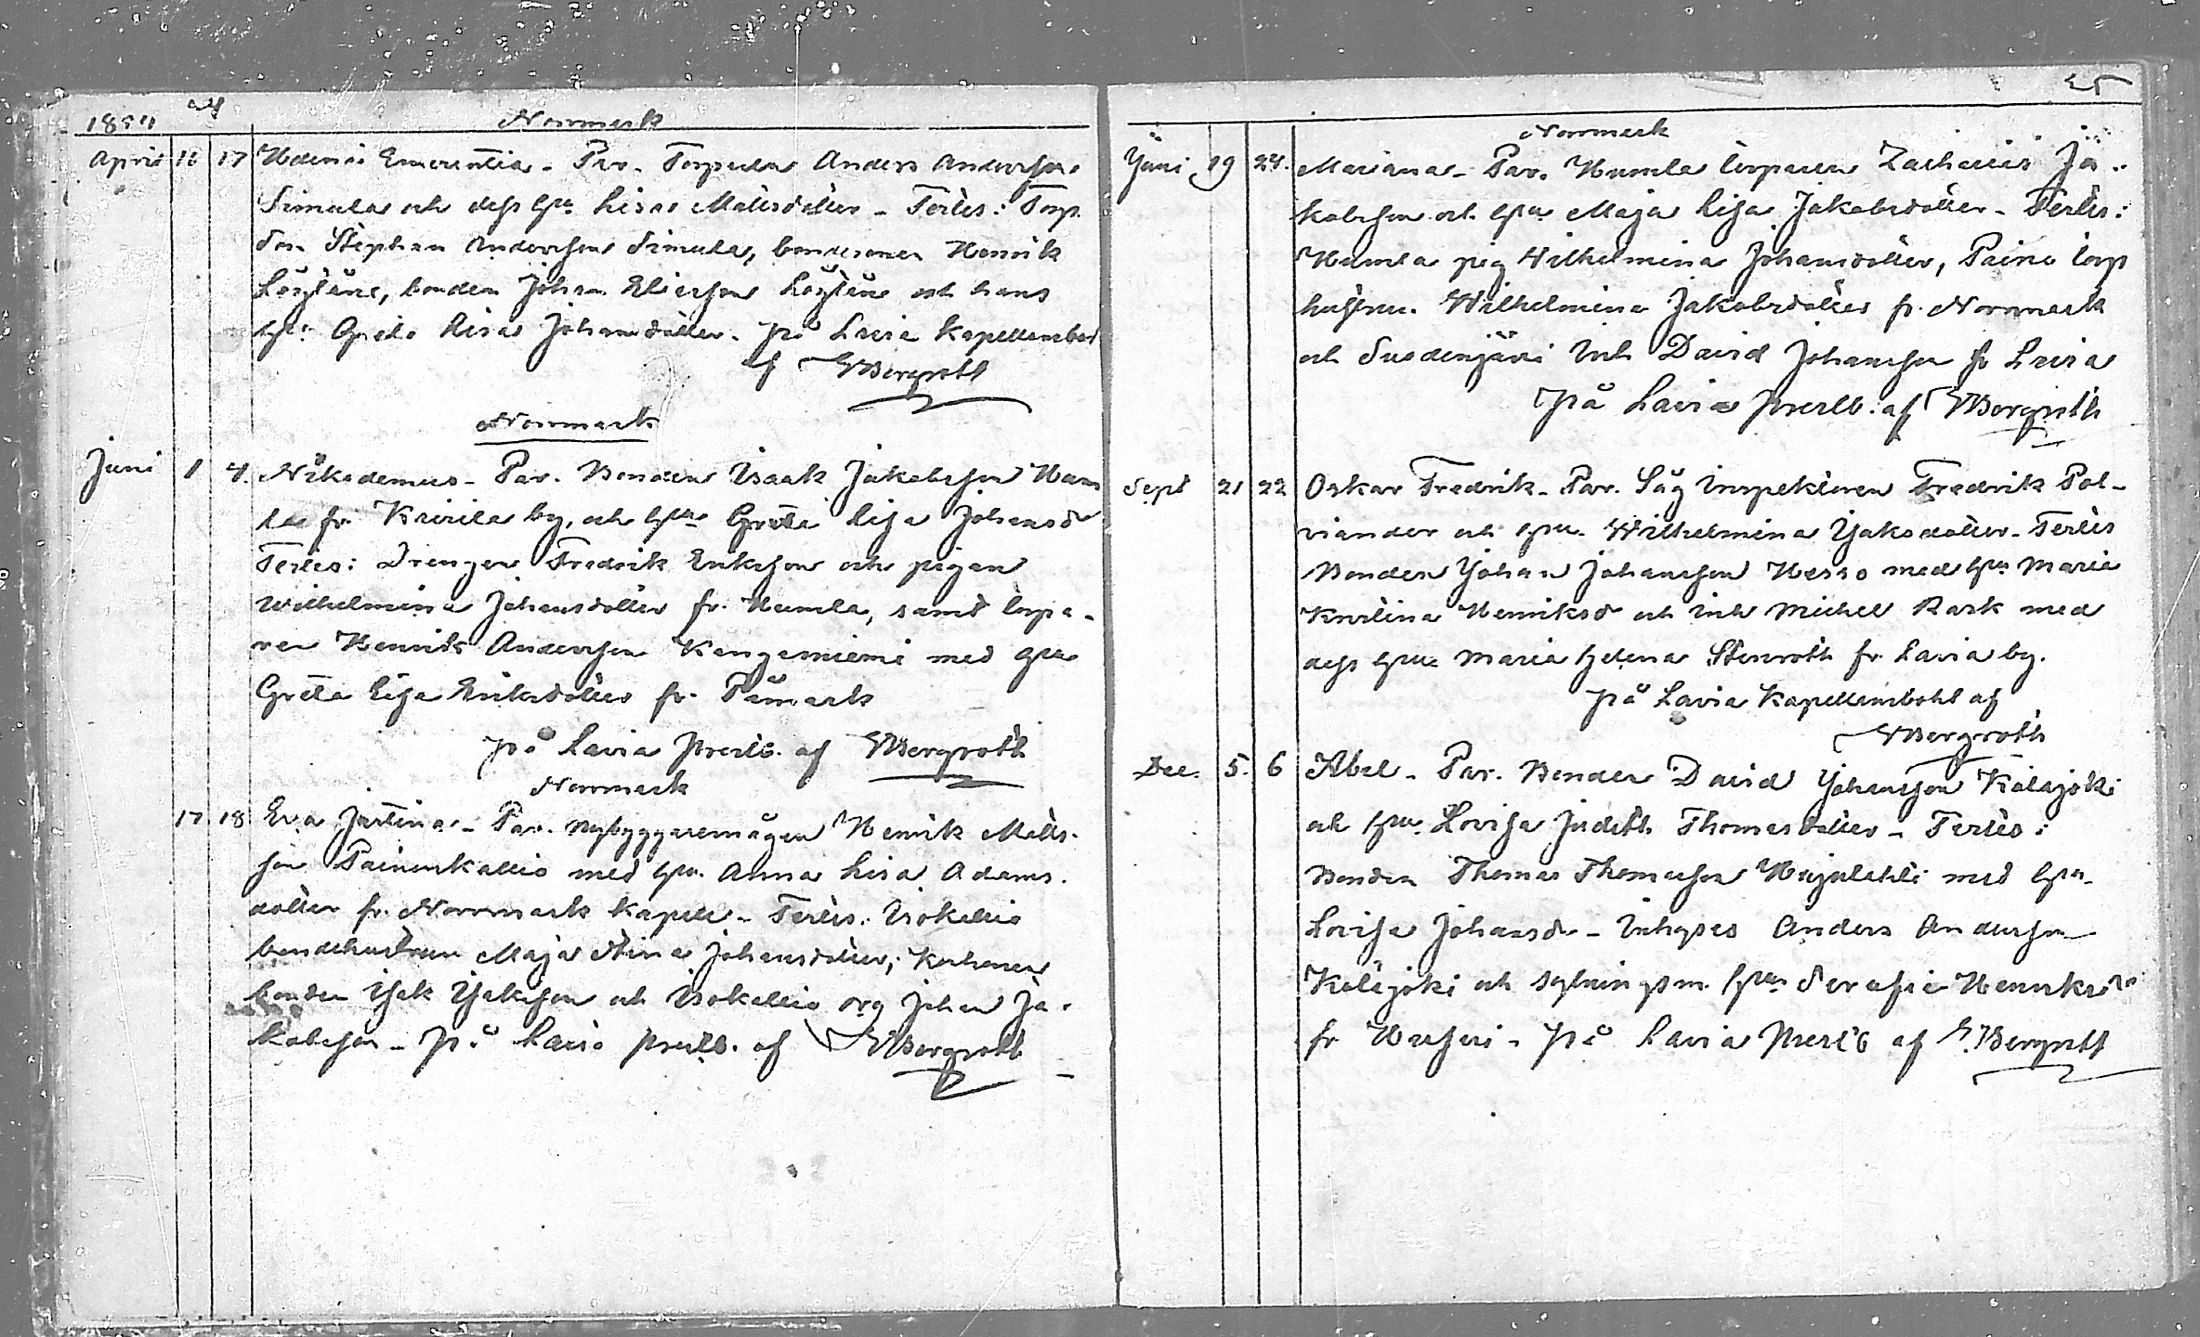 1854
Norrmark
April 16 17 Hedvig Emerentia - Par. Torparen Anders Andersson
Simula och dess hu Lisa Mattsdotter - Testes: Torp.
son Stephan Andersson Simula, bondesonen Henrik
Löytäne, bonden Johan Eliersson Löytäne och hans
hu Greta Lisa Johansdotter. på Lavia Kapellansbol
af EBergroth
Norrmark
Juni 1 4. Nikodemus - Par. Bonden Isaak Jakobsson Hum
la fr. Kivirla by, och hu Greta Lisa Johansdr
Testes: Drengen Fredrik Eriksson och pigan
Wilhelmina Johansdotter fr. Humla, samt torpa-
ren Henrik Andersson Kangasniemi med hu
Greta Lisa Eriksdotter fr. Påmark
på Lavia prestb. af EBergroth
Norrmark
17 18 Eva Justina - Par. nybyggaremågen Henrik Matts-
son Painenkallio med hu. Anna Lisa Adams-
dotter fr. Norrmark Kapell - Testes: Isokallio
bondehustrun Maja Stina Johansdotter, Korhonen
bonden Isak Isaksson och Isokallio drg Johan Ja-
kobsson - på Lavia prestb. af EBergroth
25
Norrmark
Juni 19 24. Mariana - Par. Humla torparen Zacharias Ja-
kobsson och hu Maja Lisa Jakobsdotter - Testes:
Humla pig Wilhelmina Johansdotter, Paino torp
hustrun Wilhelmina Jakobsdotter fr. Norrmark
och Susdenjärvi inh David Johansson fr Lavia
på Lavia prestb: af EBergroth
Sept 21 22 Oskar Fredrik - Par. Såg inspektoren Fredrik Pol-
viander och hu. Wilhelmina Isaksdotter - Testes
Bonden Johan Johansson Hesso med hu Maria
Karolina Henriksd och inh Michel Rask med
dess hu Maria Helena Stenroth fr. Lavia by.
på Lavia Kapellansbohl af
EBergroth
Dec. 5. 6 Abel - Par. Bonden David Johansson Kolajoki
och hu. Lovisa Judith Thomasdotter - Testes:
Bonden Thomas Thomasson Haijalahti med hu
Lovisa Johansdr - inhyses Anders Andersson
Kolajoki och sytningsm. hu Serafia Henriksdr
fr - på Lavia Prestb af E.Bergroth